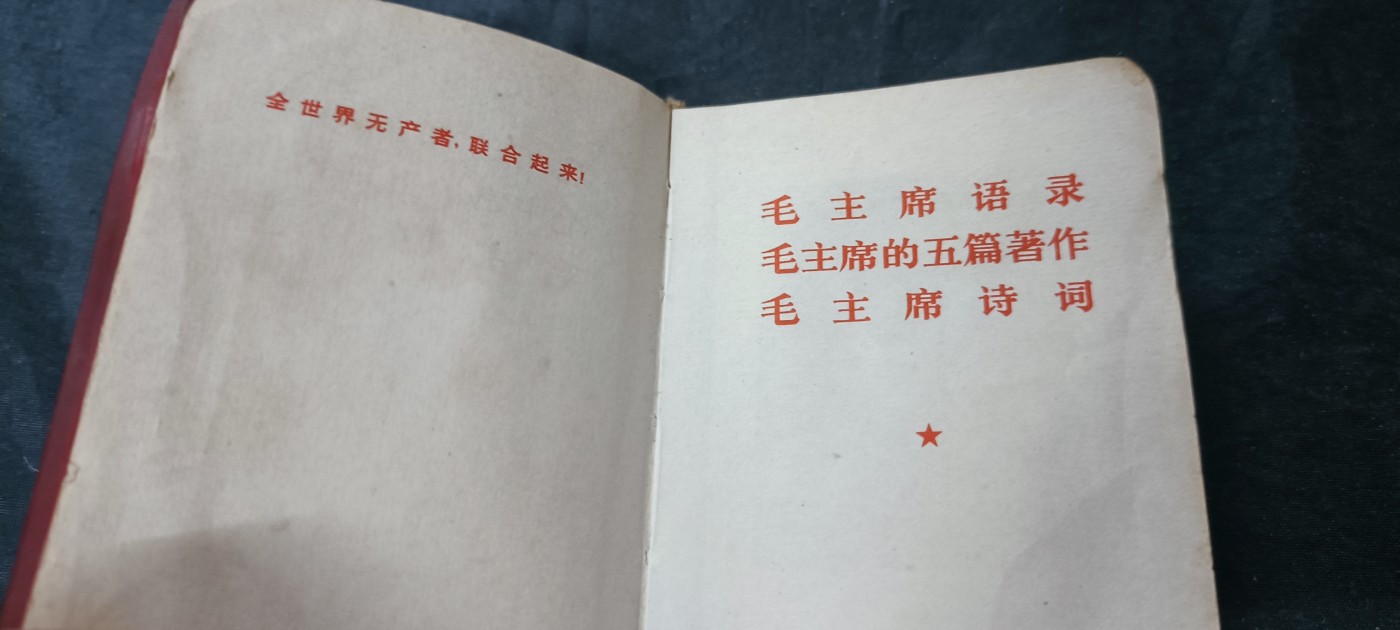 全世界无产者,联合起来!
毛主席语录
毛主席的五篇著作
毛主席诗词